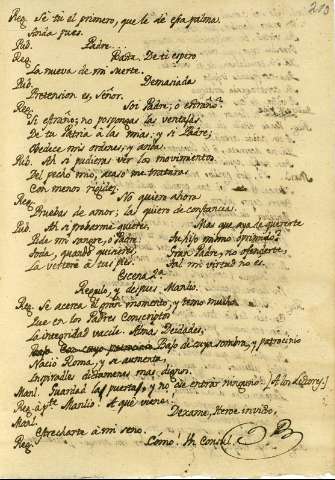 213
Reg. Sé tú el primero, que le dé esta palma.
Anda pues.
Pub. Padre.
Reg. Basta. De ti espero
La nueva de mi suerte.
Pub. Demasiada
Pretension es, Señor.
Reg. Soi Padre, ó estraño?
Si estraño; no posponga las ventajas
De tu Patria á las mias: y si Padre;
Obedece mis ordenes, y anda.
Pub. Ah si pudieras ver los movimientos
Del pecho mio, acaso me trataras
Con menor rigidez.
Reg. No quiero ahora
Pruebas de amor; las quiero de constancia.
Pub. Ah si probarme quieres,
Pide mi sangre, ó Padre.
Toda, quando quisieres
La verteré á tus pies.
Mas que aya de quererte
Tu hijo mismo oprimido?
Gran Padre, no ofenderte,
Tal mi virtud no es.
Escena 2.a
Regulo, y despues Manlio.
Reg. Se acerca el gran momento, y temo mucho
Que en los Padres Conscriptos
La integridad vacile. Alma Deidades,
Bajo de cuya sombra, y patrocinio
Nació Roma, y se aumenta,
Inspiradles dictamenes mas dignos.
Manl. Guardad las puertas, y no dé entrar ninguno. (A los Lictores)
Reg. á pte. Manlio! A qué viene?
Manl. Dexame, Heroe invicto,
Estrecharte á mi seno.
Reg. Cómo! Un Consul.